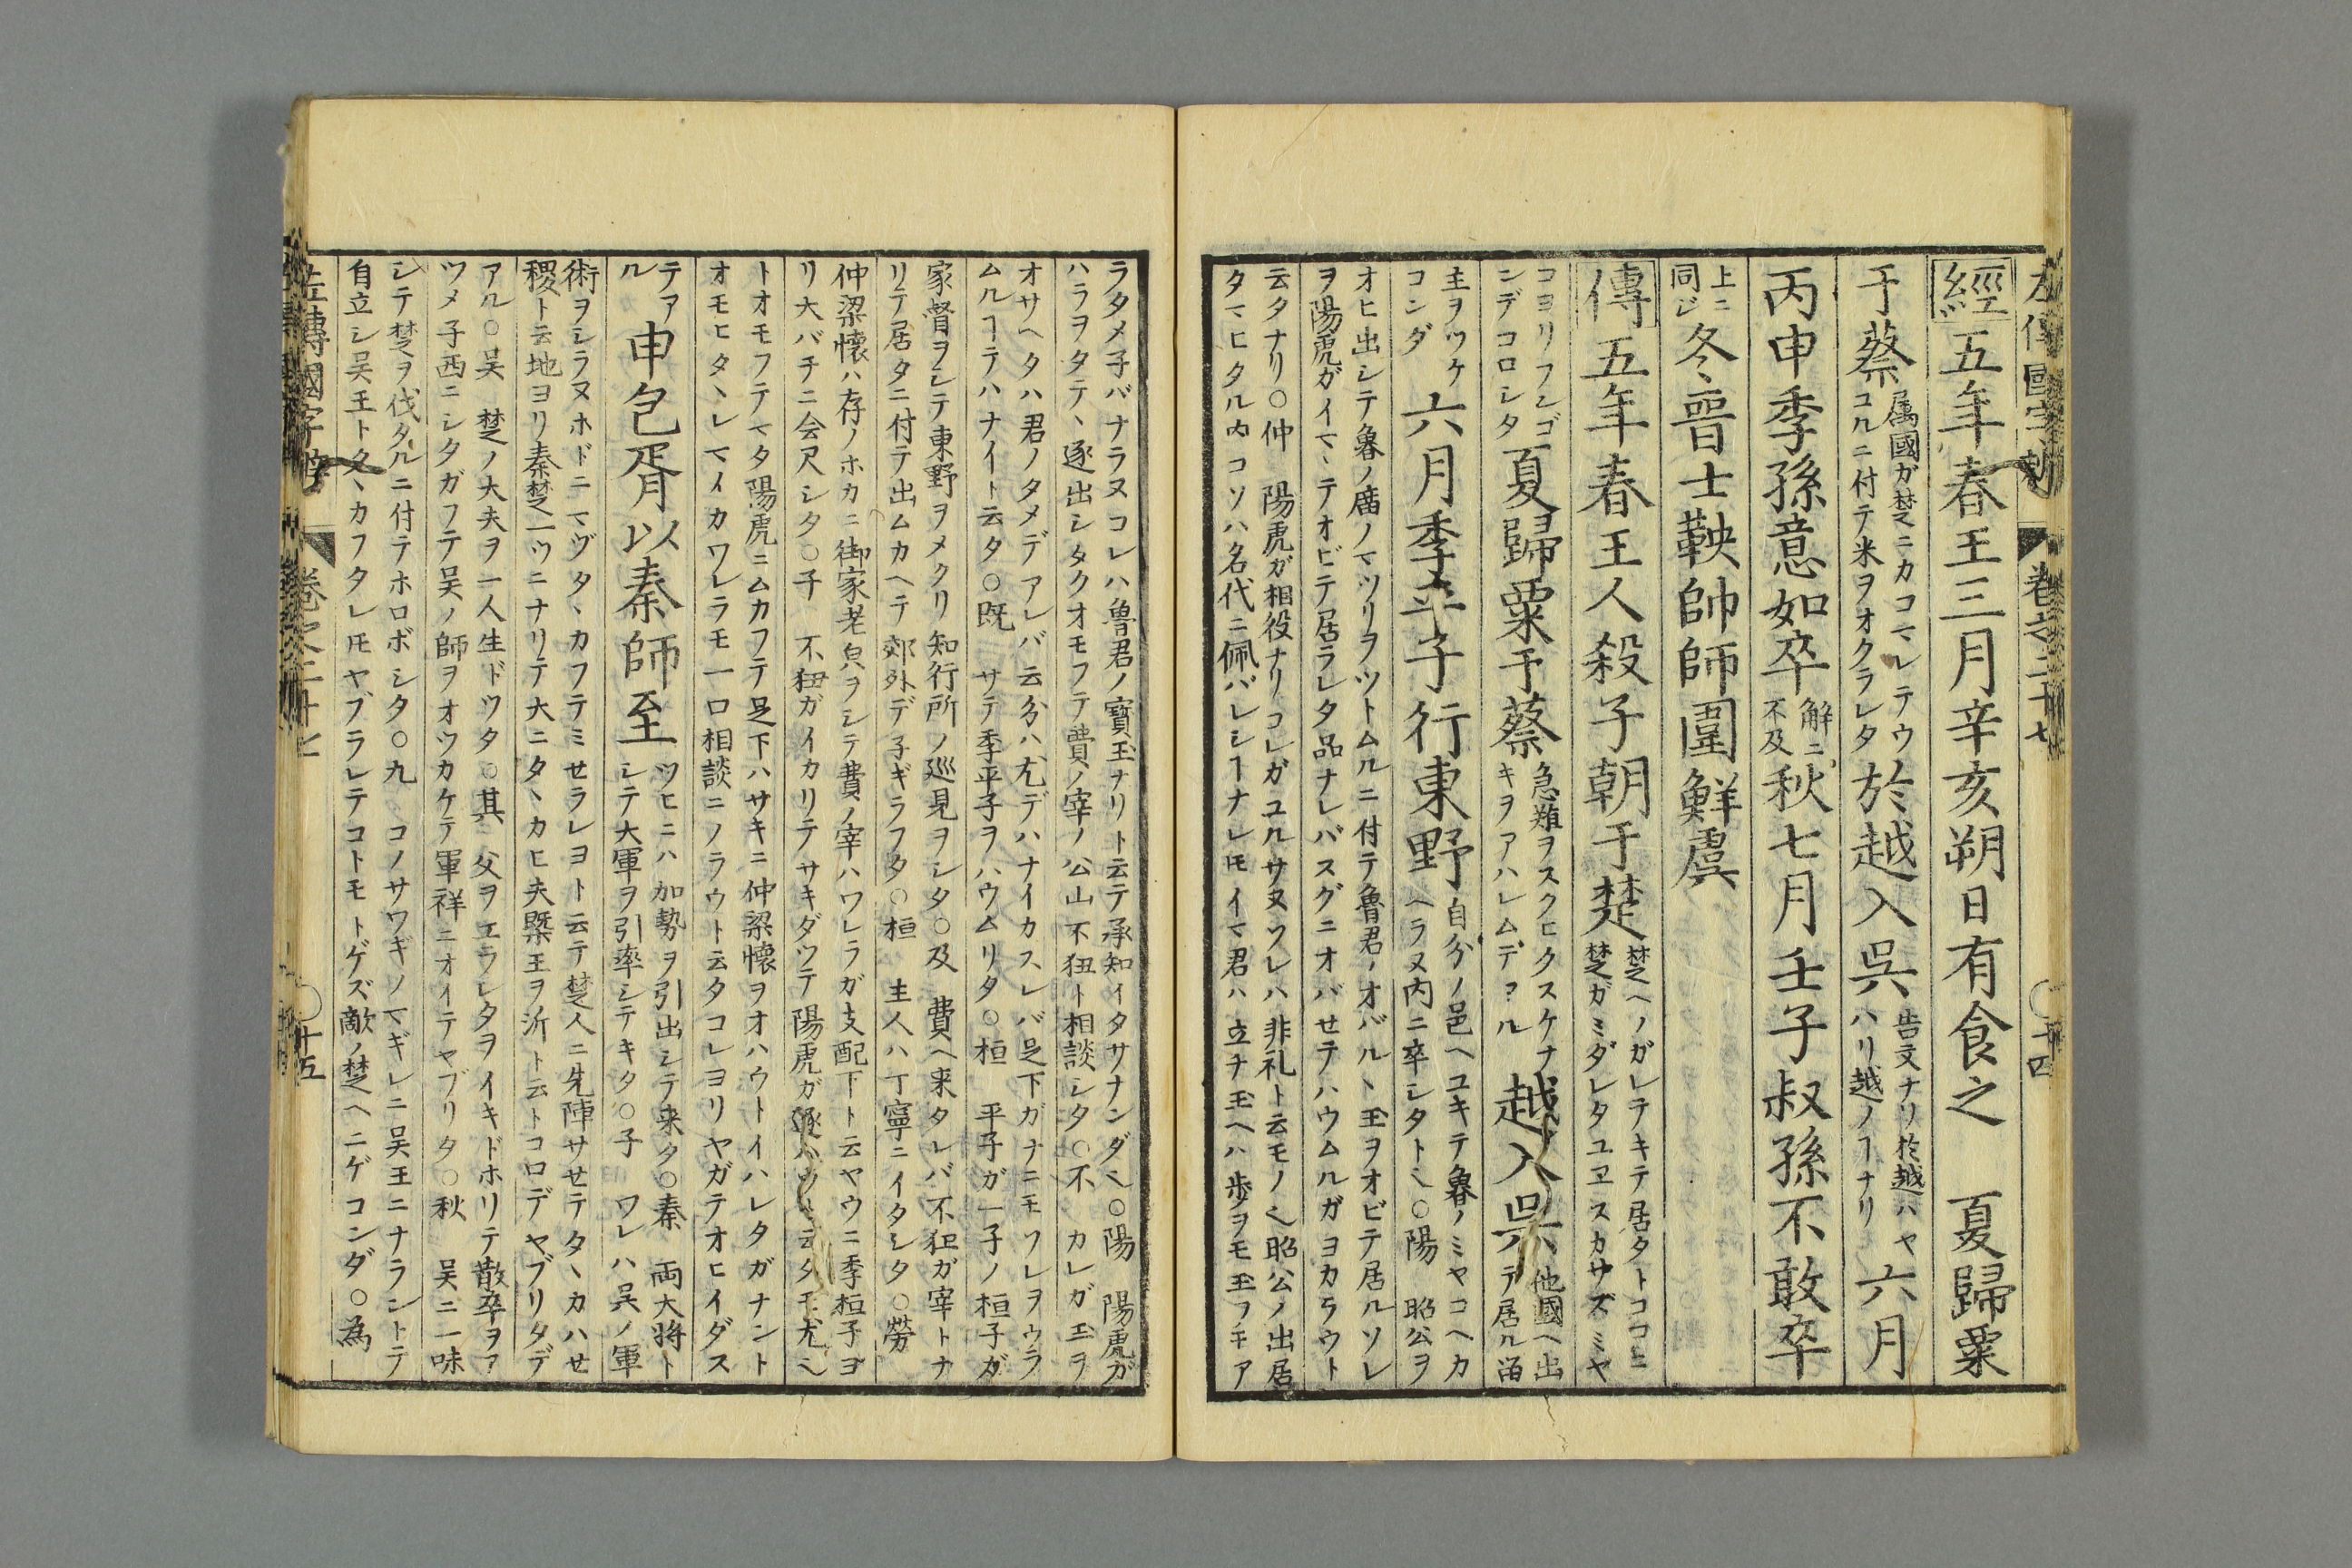 左傳國字辯 卷之二十七 ○十四
經五年春王三月辛亥朔日有食之 夏歸粟
于蔡属國ガ楚ニカコマレテウ
コルニ付テ米ヲオクラレタ於越入吳告文ナリ於越ハヤ
ハリ越ノヿナリ六月
丙申季孫意如卒解ニ
不及秋七月壬子叔孫不敢卒
上ニ
同ジ冬、晉士鞅帥師圍鮮虞
傳五年春王人殺子朝于楚楚ヘノガレテキテ居タトココニ
楚ガミダレタユヱスカサズミヤ
コヨリフシゴ
ンデコロシタ夏歸粟于蔡急難ヲスクヒクスケナ
キヲアハレムデアル越入吳他國ヘ出
テ居ル畄
主ヲツケ
コンダ六月季平子行東野自分ノ邑ヘユキテ魯ノミヤコヘカ
ヘラヌ内ニ卒シタト〻○陽 昭公ヲ
オヒ出シテ魯ノ廟ノマツリヲツトムルニ付テ魯君ノオバル、玉ヲオビテ居ルソレ
ヲ陽虎ガイマ、テオビテ居ラレタ品ナレバスグニオバせテハウムルガヨカラウト
云タナリ○仲 陽虎ガ相役ナリコレガユルサヌソレハ非礼ト云モノ〻昭公ノ出居
タマヒタル内コソハ名代ニ佩バレシヿナレ𪜈イマ君ハ立チ玉ヘハ歩ヲモ玉フキア
ラタメ子バナラヌコレハ魯君ノ寶玉ナリト云テ承知イタサナンダ〻○陽 陽虎ガ
ハラヲタテ、逐出シタクオモフテ費ノ宰ノ公山不狃ト相談シタ○不 カレガ玉ヲ
オサヘタハ君ノタメデアレバ云分ハ尤デハナイカスレバ足下ガナニモソレヲウラ
ムルヿテハナイト云タ○既 サテ季平子ヲハウムリタ○桓 平子ガ一子ノ桓子ガ
家督ヲシテ東野ヲメクリ知行所ノ巡見ヲシタ○及 費ヘ来タレバ不狃ガ宰トナ
リテ居タニ付テ出ムカヘテ郊外デ子ギラフタ○桓 主人ハ丁寧ニイタシタ○勞
仲梁懐ハ存ノホカニ御家老㒵ヲシテ費ノ宰ハワレラガ支配下ト云ヤウニ季桓子ヨ
リ大バチニ会尺シタ○子 不狃ガイカリテサキダツテ陽虎ガ逐ハウト云タモ尤〻
トオモフテマタ陽虎ニムカフテ足下ハサキニ仲梁懐ヲオハウトイハレタガナント
オモヒタ、レマイカワレラモ一口相談ニノラウト云タコレヨリヤガテオヒイダス
テア
ル申包胥以秦師至ツヒニハ加勢ヲ引出シテ来タ○秦 両大将ト
シテ大軍ヲ引率シテキタ○子 ワレハ吳ノ軍
術ヲシラヌホドニマヅタ、カフテミせラレヨト云テ楚人ニ先陣サせテタ、カハせ
稷ト云地ヨリ秦楚一ツニナリテ大ニタ、カヒ夫槩王ヲ沂ト云トコロデヤブリタデ
アル○吴 楚ノ大夫ヲ一人生ドツタ○其 父ヲエラレタヲイキドホリテ散卒ヲア
ツメ子西ニシタガフテ吴ノ師ヲオツカケテ軍祥ニオイテヤブリタ○秋 吴ニ一味
シテ楚ヲ伐タルニ付テホロボシタ○九 コノサワギノマギレニ吴王ニナラントテ
自立シ吴王トタ、カフタレ𪜈ヤブラレテコトモトゲズ敵ノ楚ヘニゲコンダ○為
左傳國字辯 卷之二十七 ○十五